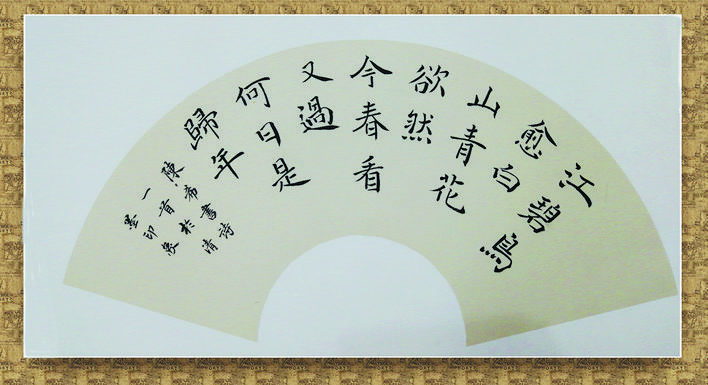 江碧鳥
愈白
山青花
欲然
今春看
又過
何日是
歸年
陳希書詩
一首於清
墨印